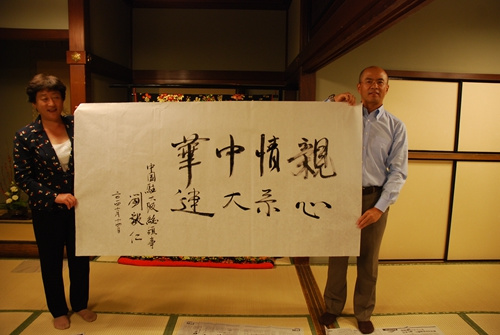 親情中華
心系大連
中國駐大阪總領事
劉毅仁